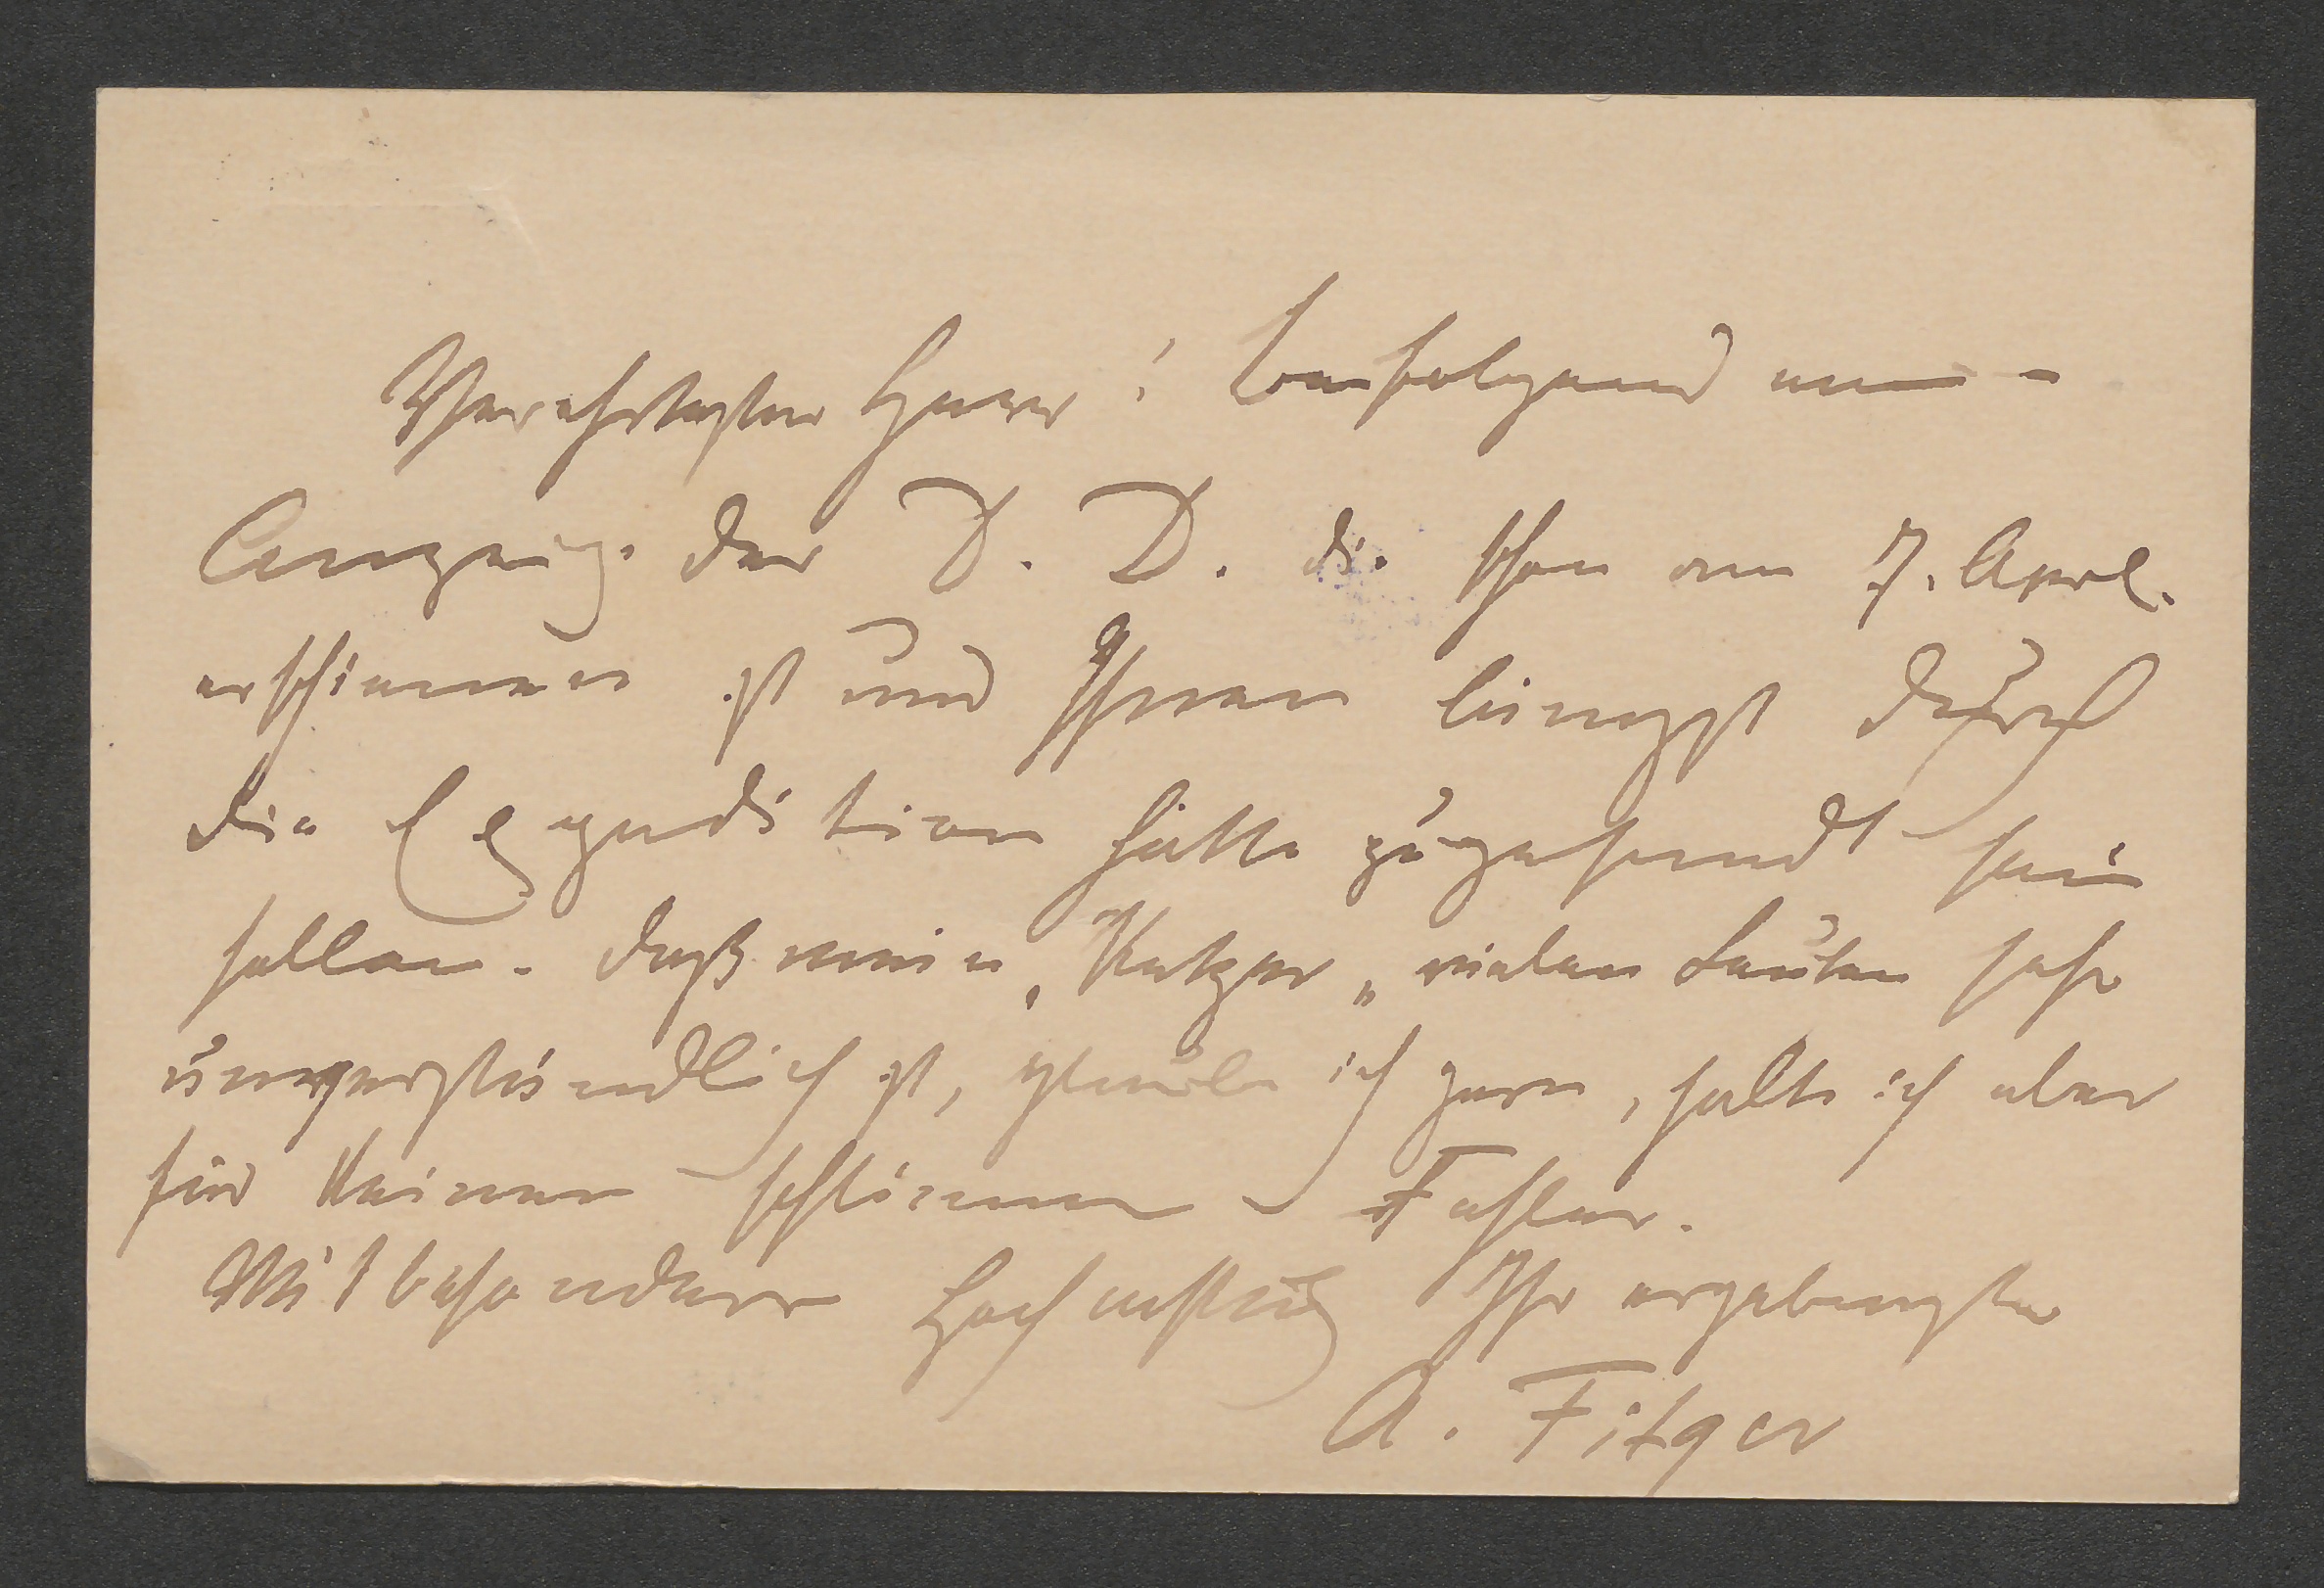 Verehrtester Herr! beifolgend eine
Anzeige der D. D. die schon am 7. Aprl.
erschienen ist und Ihnen längst durch
die Expedition hätte zugesandt sein
sollen. Daß meine „Ketzer„ vielen Leuten sehr
unverständlich ist, glaube ich gern, halte ich aber
für keinen schlimmen Fehler.
Mit besonderer Hochachtung Ihr ergebenster
A. Fitger